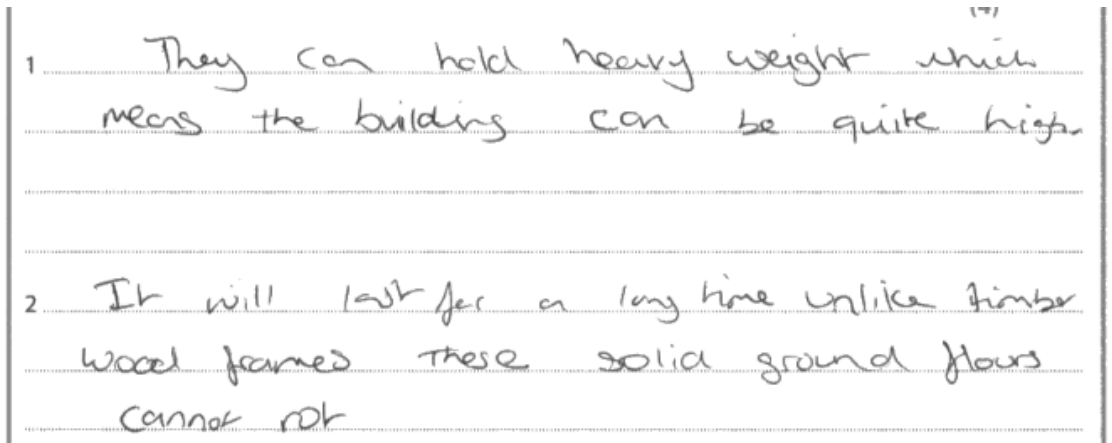 (4)
1 They can hold heavy weight which
means the building can be quite high.
2 It will last for a long time unlike timber
wood frames these solid ground floors
cannot rot